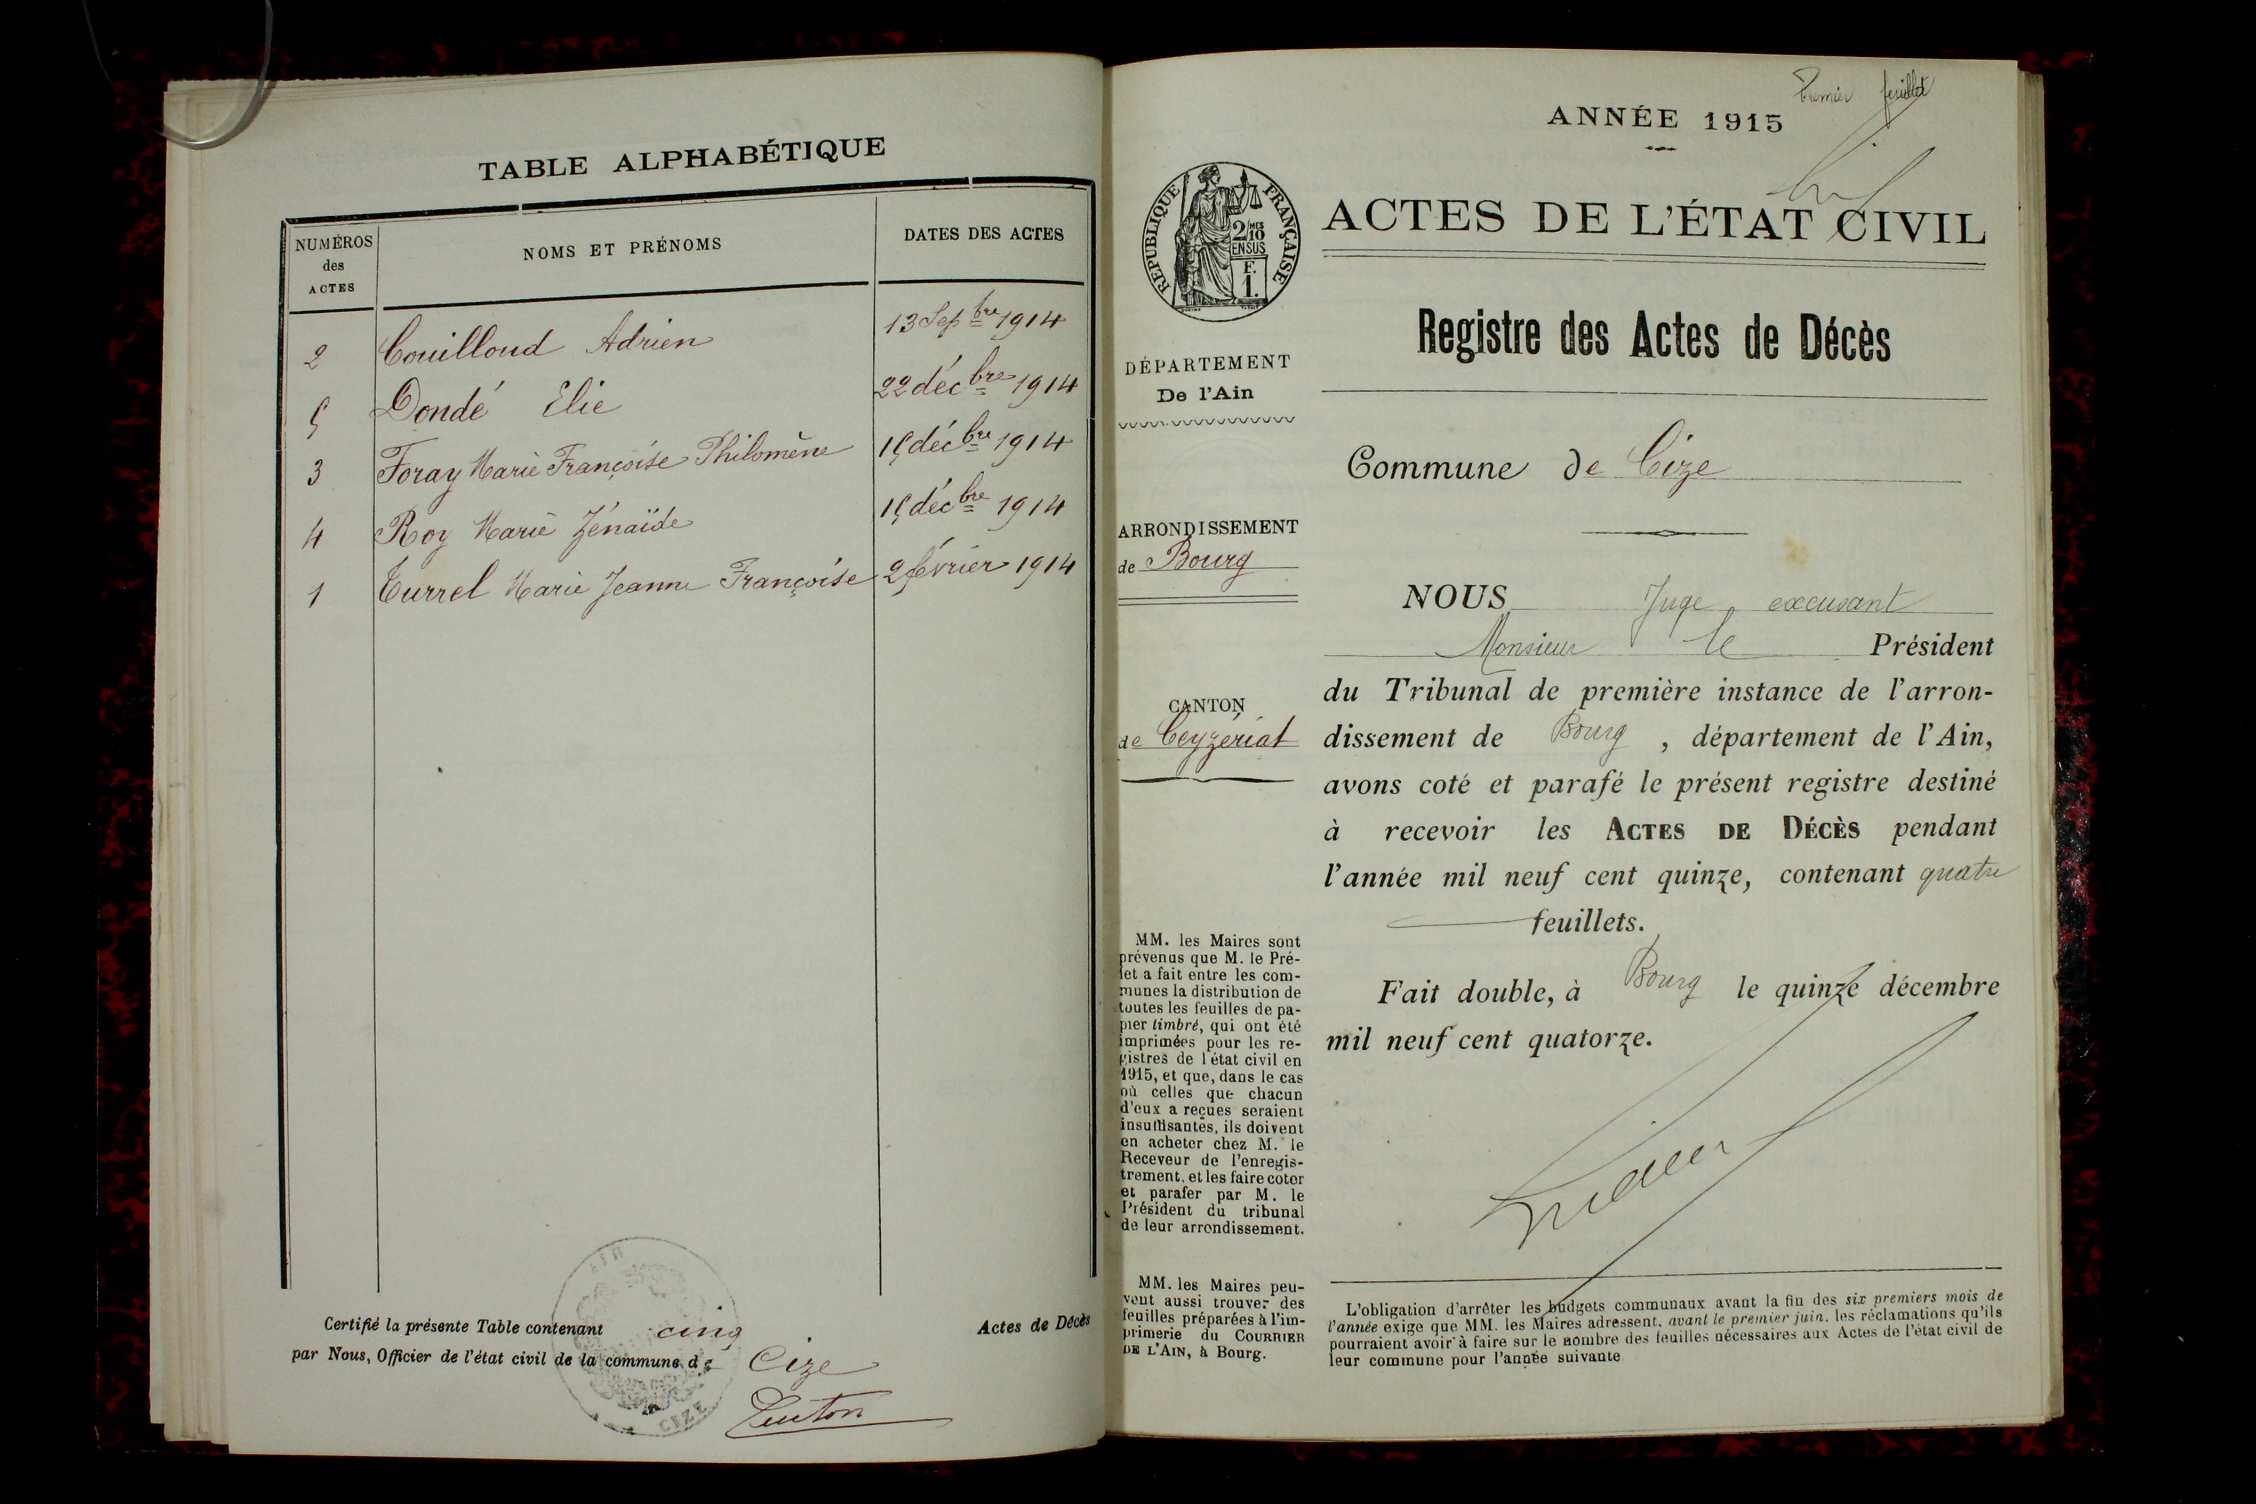 TABLE ALPHABÉTIQUE
NUMÉROS
des
ACTES
NOMS ET PRÉNOMS
DATES DES ACTES
2 Couilloud Adrien 13 Sepbre 1914
5 Dondé Elie 22 décbre 1914
3 Foray Marie Françoise Philomène 15 décbre 1914
4 Roy Marie Zénaïde 15 décbre 1914
1 Turrel Marie Jeanne Françoise 2 février 1914
Certifié la présente Table contenant cinq Actes de Décès
par Nous, Officier de l'état civil de la commune de Cize
AIN
CIZE
Premier feuillet
ANNÉE 1915
RÉPUBLIQUE FRANÇAISE
2/MES
10
EN SUS
F.
1.
ACTES DE L'ÉTAT CIVIL
Registre des Actes de Décès
DÉPARTEMENT
De l'Ain
Commune de Cize
ARRONDISSEMENT
de Bourg
CANTON
de Ceyzériat
NOUS Juge excusant
Monsieur le Président
du Tribunal de première instance de l'arron-
dissement de Bourg, département de l'Ain,
avons coté et parafé le présent registre destiné
à recevoir les ACTES DE DÉCÈS pendant
l'année mil neuf cent quinze, contenant quatre
feuillets.
Fait double, à Bourg le quinze décembre
mil neuf cent quatorze.
MM. les Maires sont
prévenus que M. le Pré-
fet a fait entre les com-
munes la distribution de
toutes les feuilles de pa-
pier timbré, qui ont été
imprimées pour les re-
gistres de l'état civil en
1915, et que, dans le cas
où celles que chacun
d'eux a reçues seraient
insuffisantes, ils doivent
en acheter chez M. le
Receveur de l'enregis-
trement, et les faire coter
et parafer par M. le
Président du tribunal
de leur arrondissement.
MM. les Maires peu-
vent aussi trouver des
feuilles préparées à l'im-
primerie du COURRIER
DE L'AIN, à Bourg.
L'obligation d'arrêter les budgets communaux avant la fin des six premiers mois de
l'année exige que MM. les Maires adressent, avant le premier juin, les réclamations qu'ils
pourraient avoir à faire sur le nombre des feuilles nécessaires aux Actes de l'état civil de
leur commune pour l'année suivante